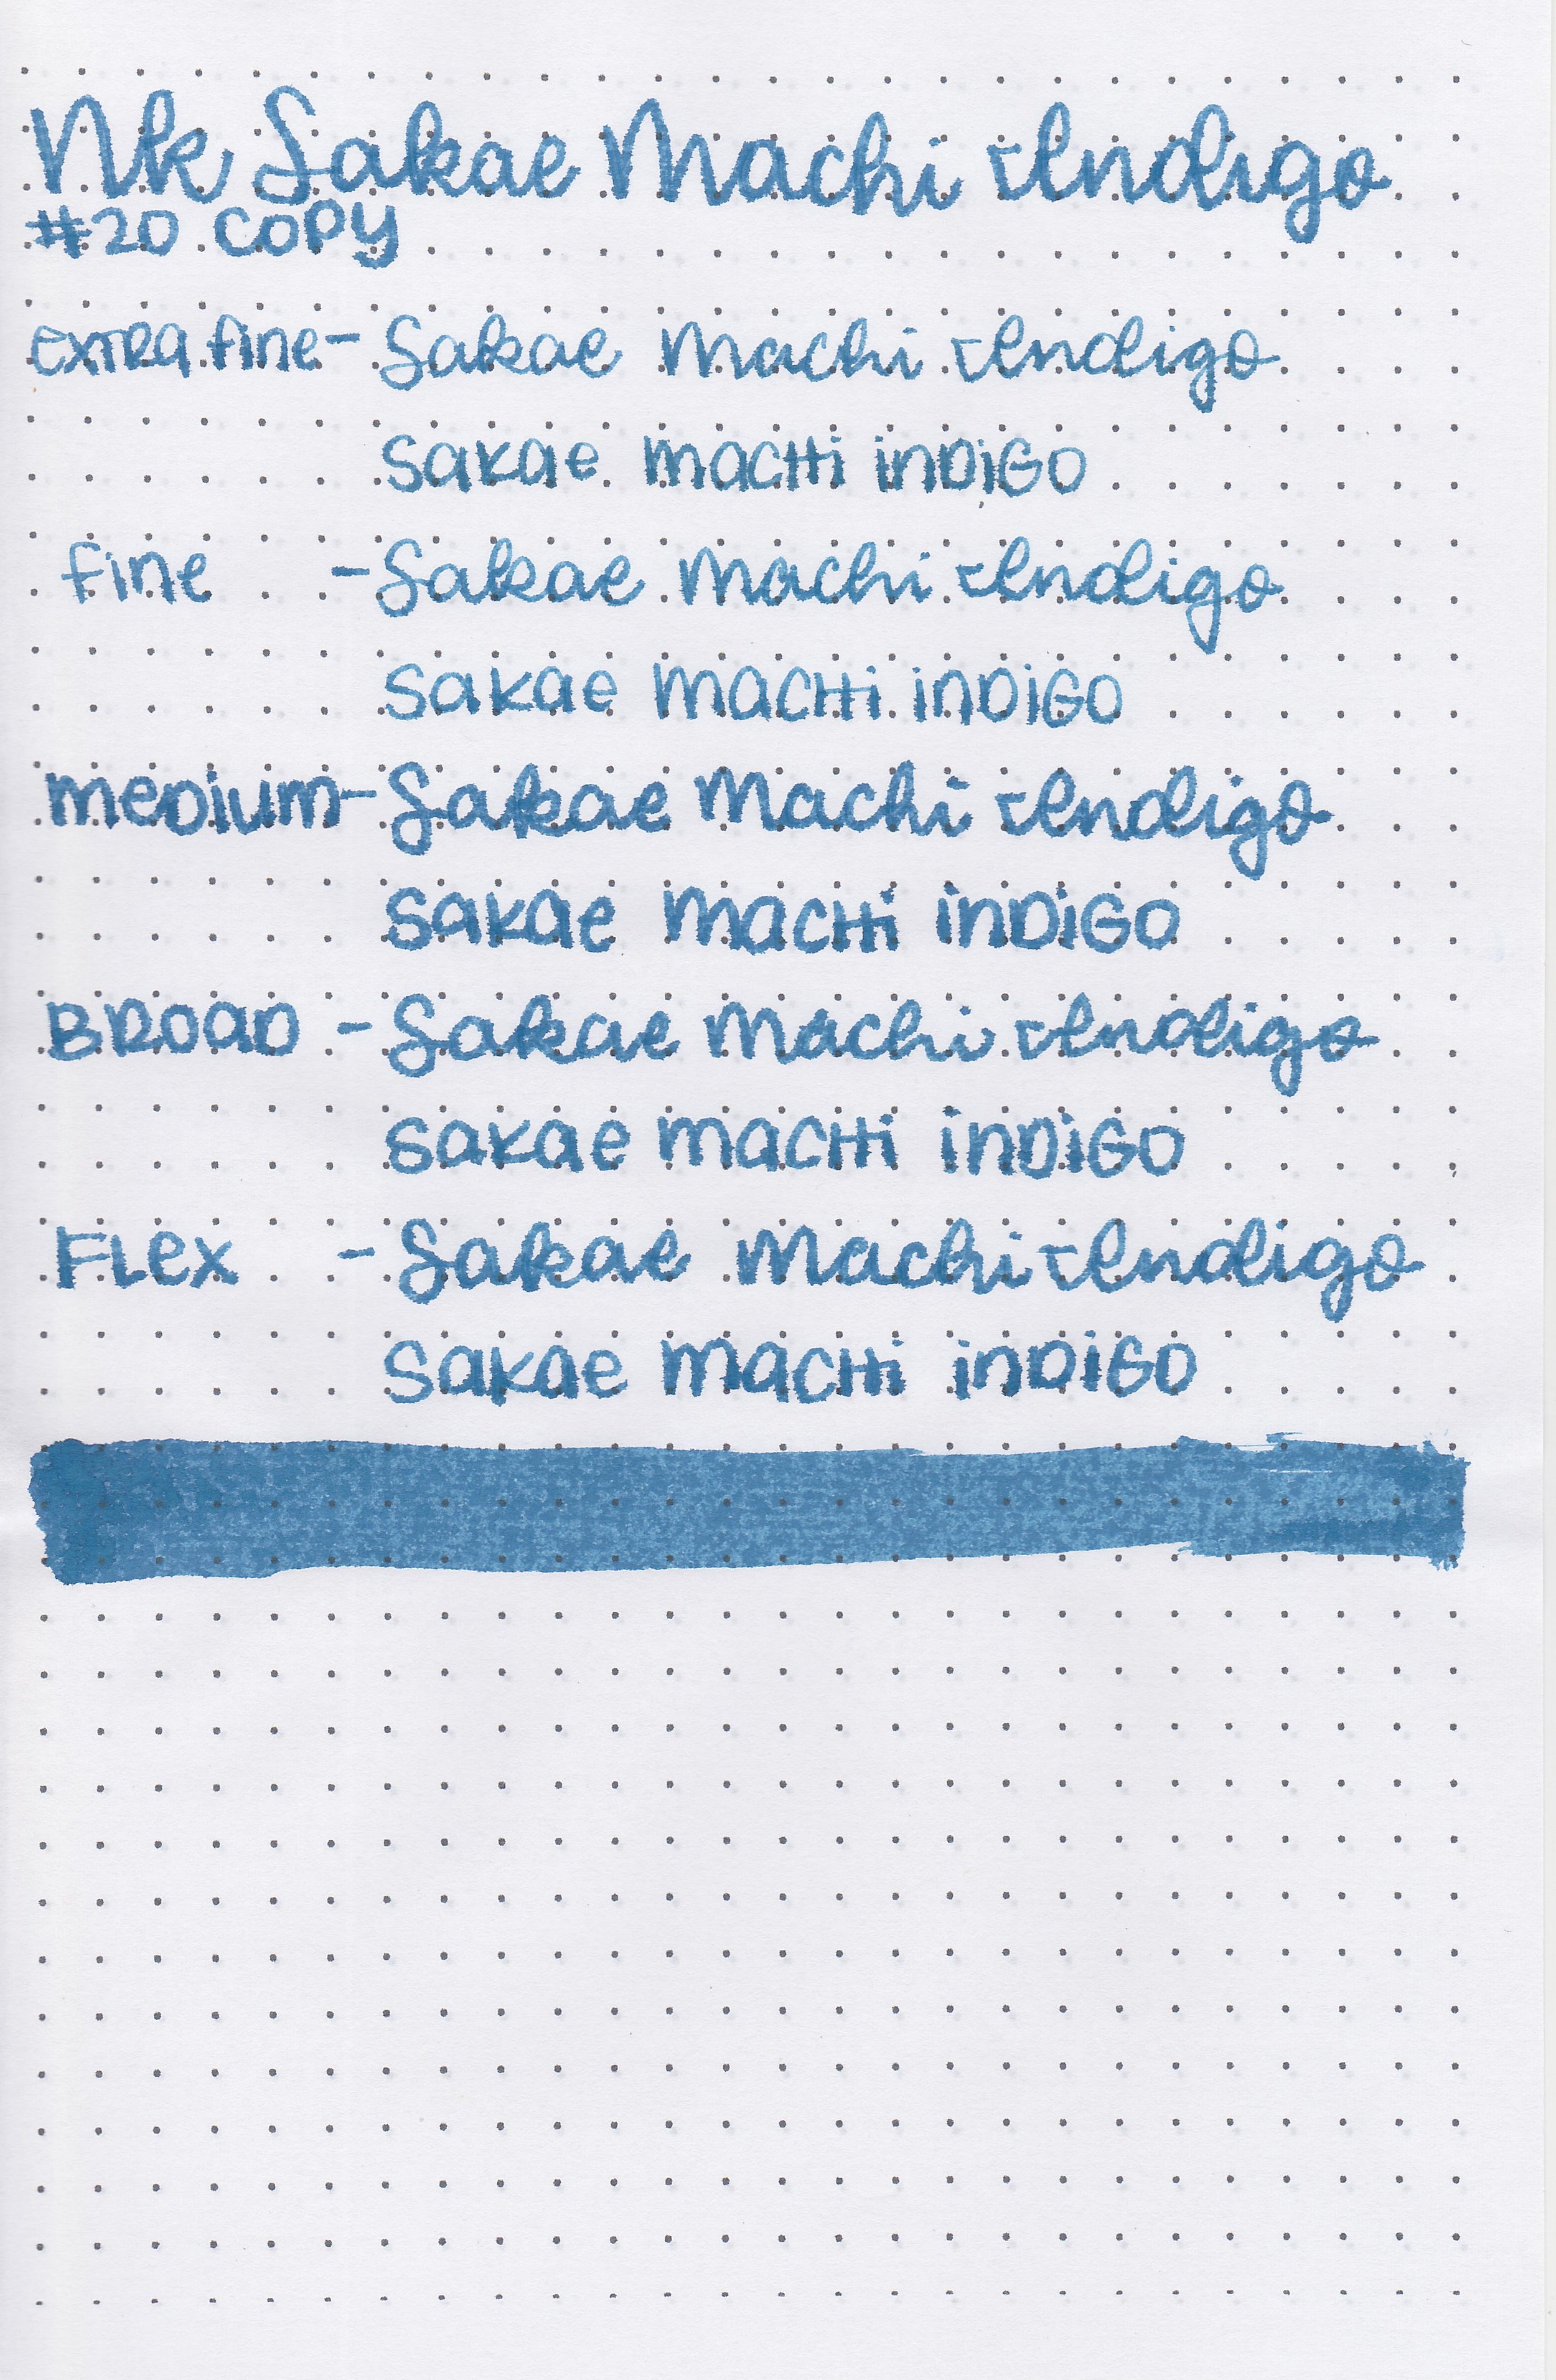 NK Sakae Machi Indigo
#20 COPY
extra fine - Sakae Machi Indigo
Sakae Machi Indigo
fine - Sakae Machi Indigo
Sakae Machi Indigo
Medium - Sakae Machi Indigo
Sakae Machi Indigo
Broad - Sakae Machi Indigo
Sakae Machi Indigo
Flex - Sakae Machi Indigo
Sakae Machi Indigo